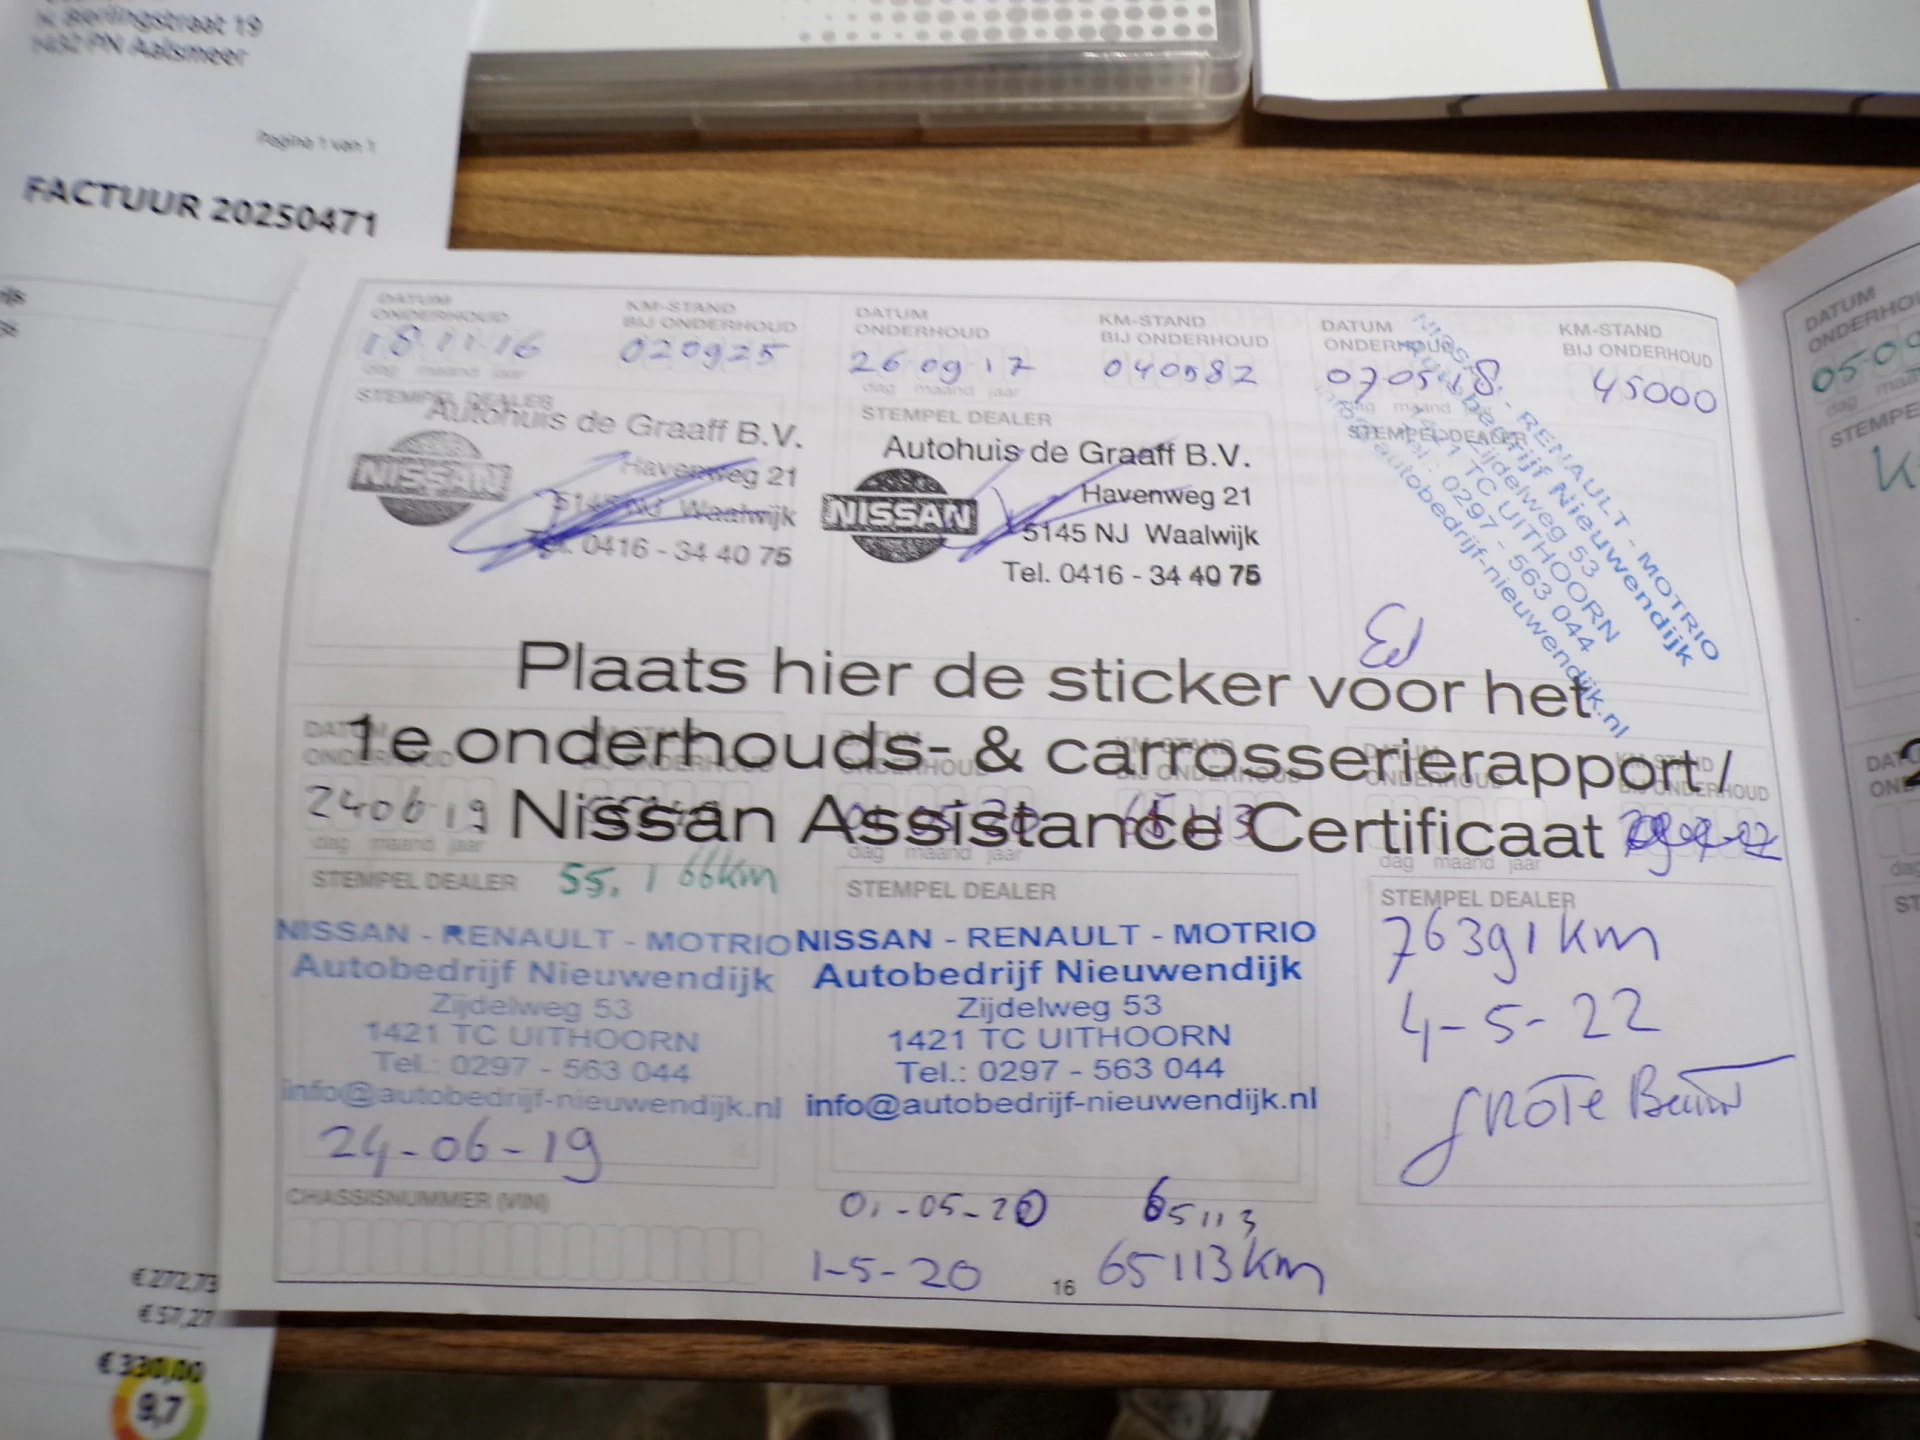 Berlingstraat 19
1432 PN Aalsmeer
Pagina 1 van 1
FACTUUR 20250471
€ 272,73
€ 57,27
€ 330,00
9,7
DATUM ONDERHOUD
KM-STAND BIJ ONDERHOUD
18 11 16
020925
dag maand jaar
STEMPEL DEALER
Autohuis de Graaff B.V.
NISSAN
Havenweg 21
5145 NJ Waalwijk
Tel. 0416 - 34 40 75
DATUM ONDERHOUD
KM-STAND BIJ ONDERHOUD
26 09 17
040582
dag maand jaar
STEMPEL DEALER
Autohuis de Graaff B.V.
NISSAN
Havenweg 21
5145 NJ Waalwijk
Tel. 0416 - 34 40 75
DATUM ONDERHOUD
KM-STAND BIJ ONDERHOUD
07 05 18
45000
dag maand jaar
STEMPEL DEALER
NISSAN - RENAULT - MOTRIO
Autobedrijf Nieuwendijk
Zijdelweg 53
1421 TC UITHOORN
Tel.: 0297 - 563 044
info@autobedrijf-nieuwendijk.nl
Plaats hier de sticker voor het
1e onderhouds- & carrosserierapport /
Nissan Assistance Certificaat
DATUM ONDERHOUD
24 06 19
dag maand jaar
STEMPEL DEALER
55.166km
NISSAN - RENAULT - MOTRIO
Autobedrijf Nieuwendijk
Zijdelweg 53
1421 TC UITHOORN
Tel.: 0297 - 563 044
info@autobedrijf-nieuwendijk.nl
24-06-19
CHASSISNUMMER (VIN)
dag maand jaar
STEMPEL DEALER
NISSAN - RENAULT - MOTRIO
Autobedrijf Nieuwendijk
Zijdelweg 53
1421 TC UITHOORN
Tel.: 0297 - 563 044
info@autobedrijf-nieuwendijk.nl
01-05-20 65113
1-5-20 65113km
16
KM-STAND BIJ ONDERHOUD
dag maand jaar
STEMPEL DEALER
76391km
4-5-22
grote Beurt
DATUM